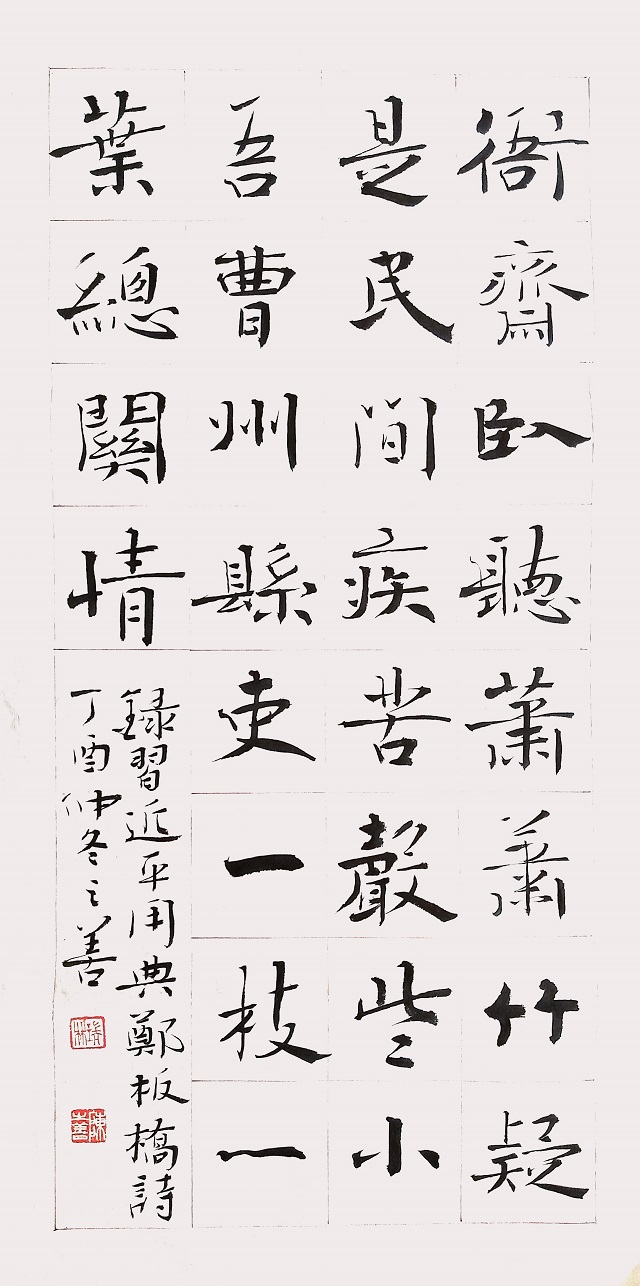 衙齋臥聽蕭蕭竹疑
是民間疾苦聲些小
吾曹州縣吏一枝一
葉總關情
録習近平用典鄭板橋詩
丁酉仲冬之善